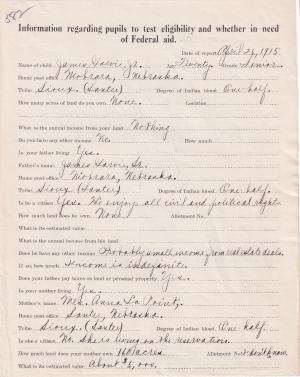 382
Information regarding pupils to test eligibility and whether in need
of Federal aid.
Date of report April 26, 1915.
Name of child James Garvie, Jr. Age Twenty Grade Senior.
Home post office Niobrara, Nebraska.
Tribe Sioux (Santee) Degree of Indian blood One-half.
How many acres of land do you own None. Location
What is the annual income from your land Nothing
Do you have any other income No. How much
Is your father living Yes.
Father's name James Garvie, Sr.
Home post office Niobrara, Nebraska.
Tribe Sioux (Santee) Degree of Indian blood One-half.
Is he a citizen Yes. We enjoy all civil and political rights.
How much land does he own None. Allotment No.
What is its estimated value
What is the annual income from his land
Does he have any other income Probably small income from real estate deals.
If so, how much Income is indefinite.
Does your father pay taxes on land or personal property Yes.
Is your mother living Yes.
Mother's name Mrs. Anna La Point,
Home post office Santee, Nebraska.
Tribe Sioux (Santee) Degree of Indian blood One-half.
Is she a citizen No. She is living on the reservation.
How much land does your mother own 160 acres. Allotment No. I don't know.
What is its estimated value About $5,000.